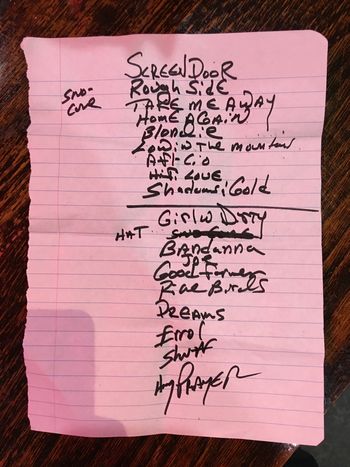 SCREEN DOOR
Rough Side
SNO-
CONE
TAKE ME AWAY
HOME AGAIN
Blondie
Low in the mountain
Afl-Cio
Hifi Love
Shadows: Gold
Girl w Dirty
HAT
SNO CONE
BANdANNA
JOE
Good Farmer
Rice Birds
DREAMS
Errol
My PRAYER